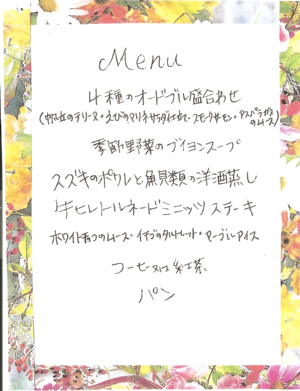 Menu
4種のオードブル盛合わせ
のテリーヌ・えびのマリネサラダ仕立て・スモークサーモン・アスパラガスのムース)
季節野菜のブイヨンスープ
スズキのポワレと魚貝類の洋酒蒸し
牛ヒレトルネードミニッツステーキ
ホワイトチョコのムース・イチゴのタルトレット・マーブルアイス
コーヒー又は紅茶
パン